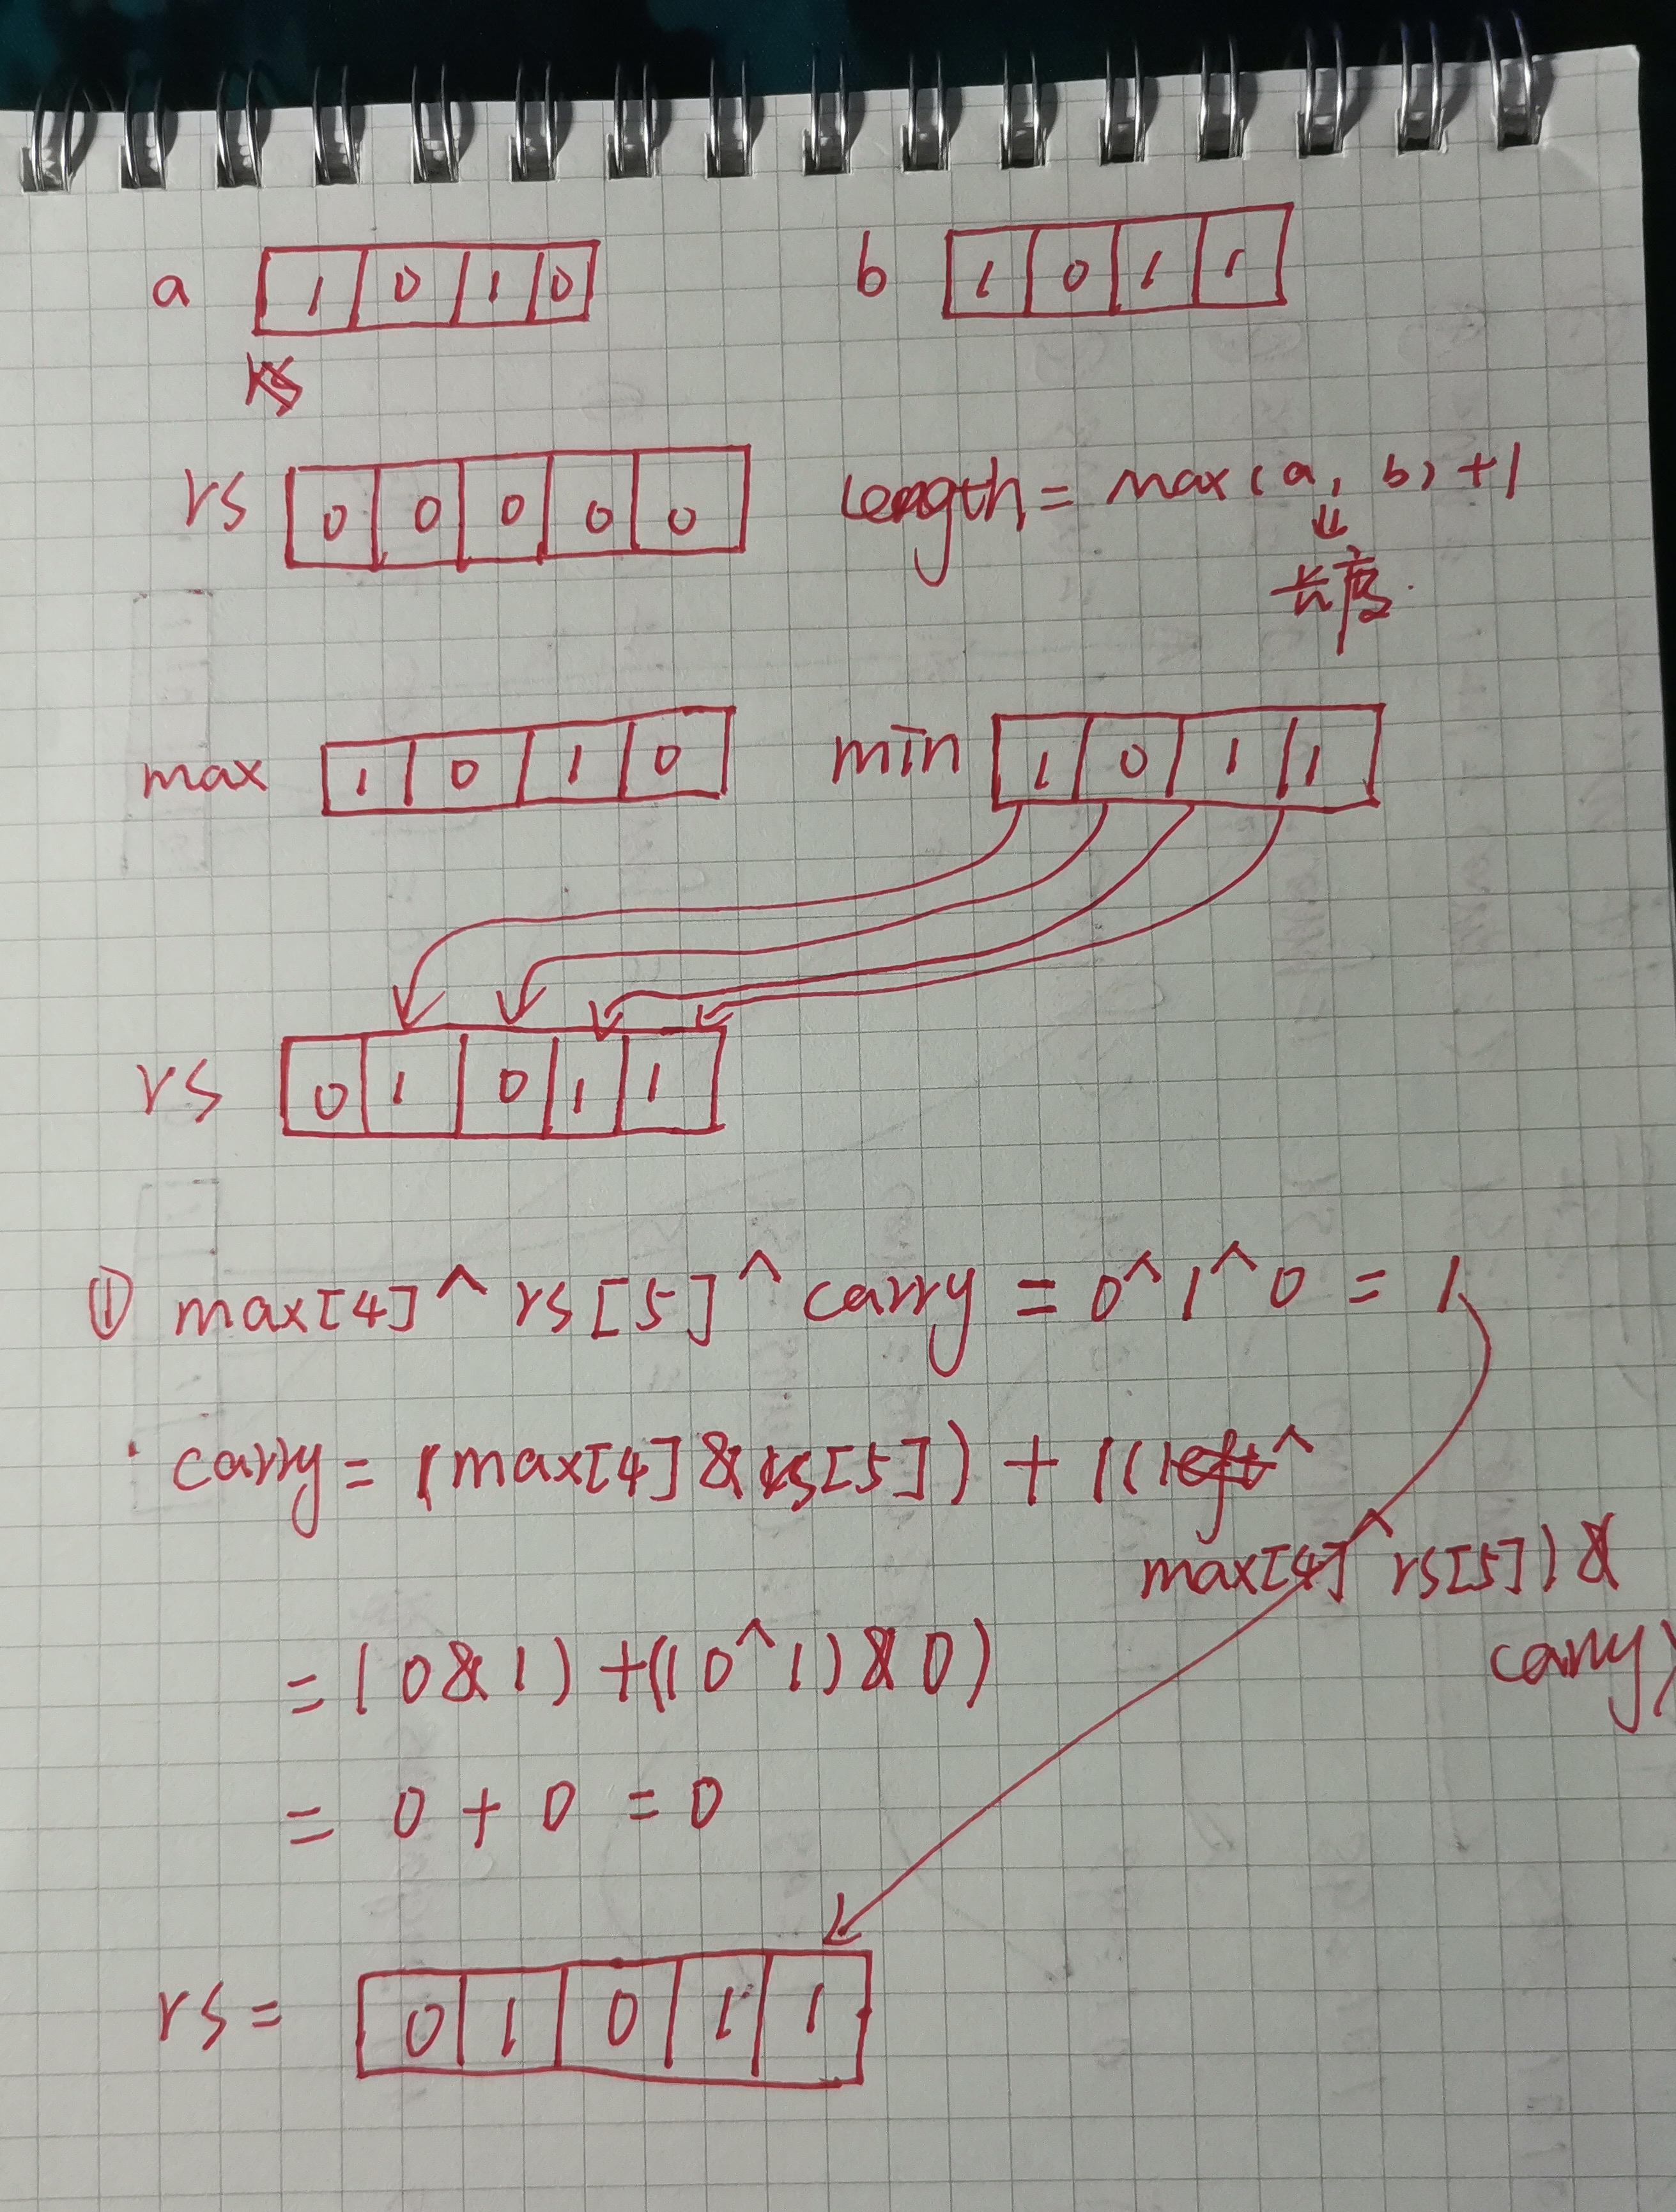 a 1 0 1 0 b 1 0 1 1
rs
rs 0 0 0 0 0 length = max(a, b) + 1
⇓
长度.
max 1 0 1 0 min 1 0 1 1
rs 0 1 0 1 1
① max[4] ^ rs[5] ^ carry = 0 ^ 1 ^ 0 = 1
carry = (max[4] & rs[5]) + ((left ^
max[4] ^ rs[5]) &
carry)
= (0 & 1) + ((0 ^ 1) & 0)
= 0 + 0 = 0
rs = 0 1 0 1 1